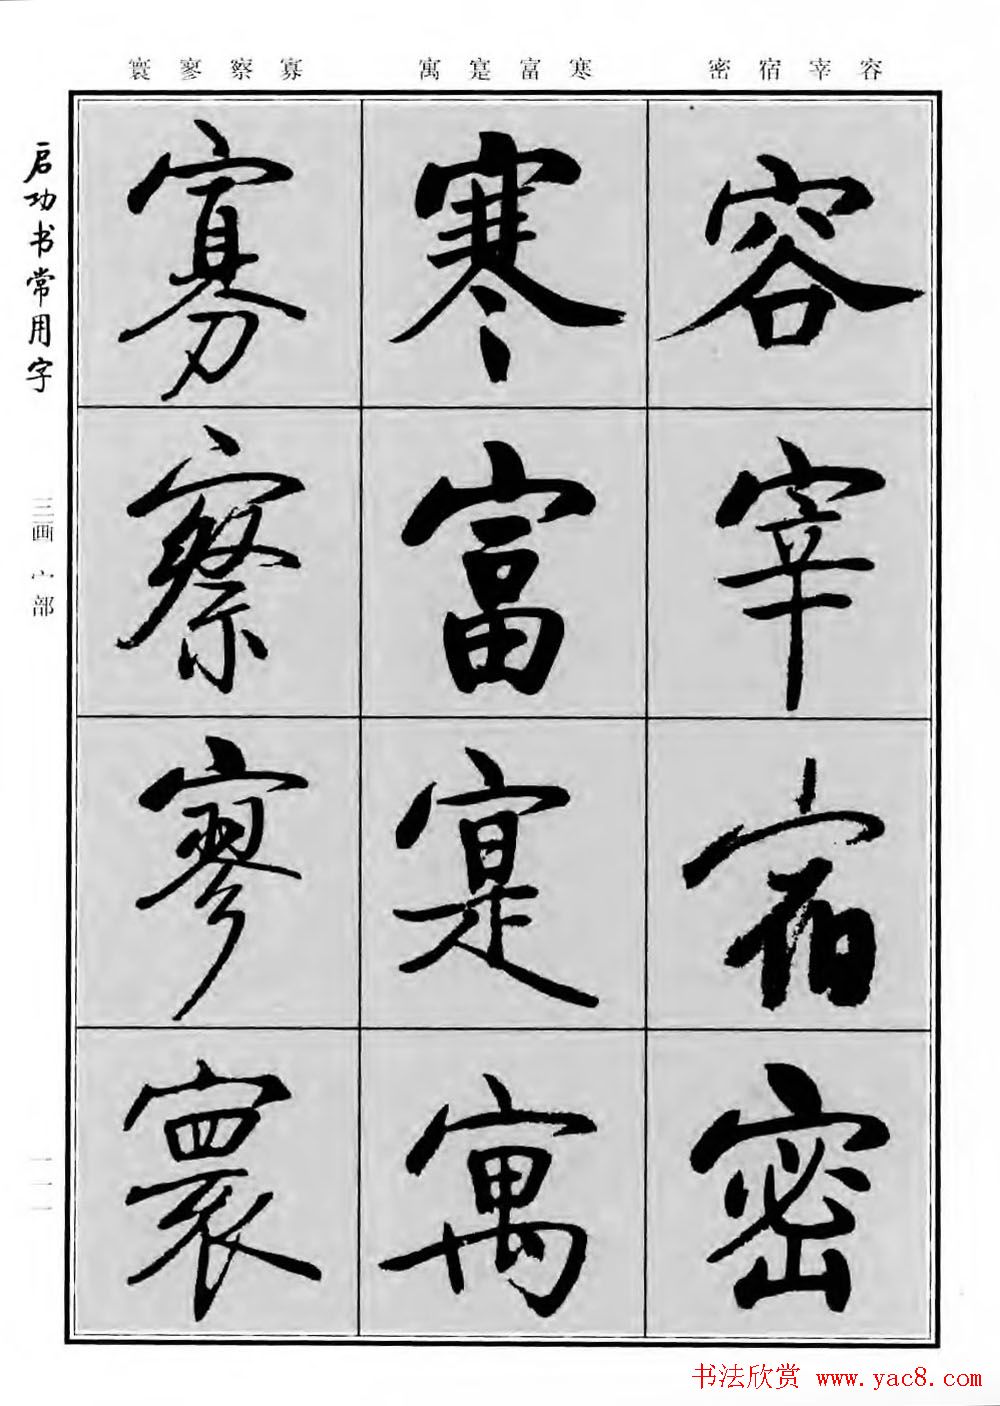 寰寥察寡 寓寔富寒 密宿宰容
启功书常用字
三画 宀部
一一一
容
宰
宿
密
寒
富
寔
寓
寡
察
寥
寰
书法欣赏 www.yac8.com